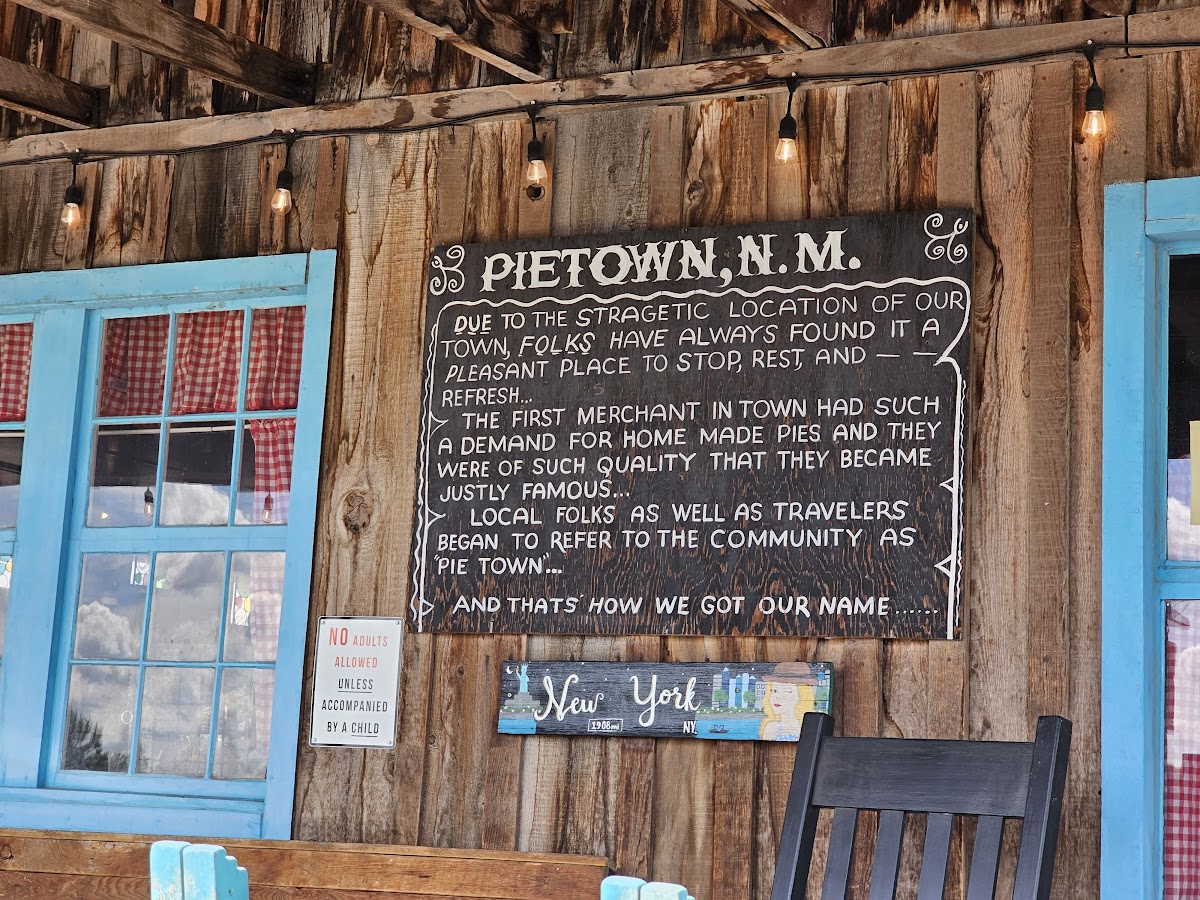 PIETOWN, N.M.
DUE TO THE STRAGETIC LOCATION OF OUR
TOWN, FOLKS HAVE ALWAYS FOUND IT A
PLEASANT PLACE TO STOP, REST, AND — —
REFRESH...
THE FIRST MERCHANT IN TOWN HAD SUCH
A DEMAND FOR HOME MADE PIES AND THEY
WERE OF SUCH QUALITY THAT THEY BECAME
JUSTLY FAMOUS...
LOCAL FOLKS AS WELL AS TRAVELERS
BEGAN TO REFER TO THE COMMUNITY AS
"PIE TOWN"...
AND THATS' HOW WE GOT OUR NAME.......
NO ADULTS
ALLOWED
UNLESS
ACCOMPANIED
BY A CHILD
New York
1908mi NY